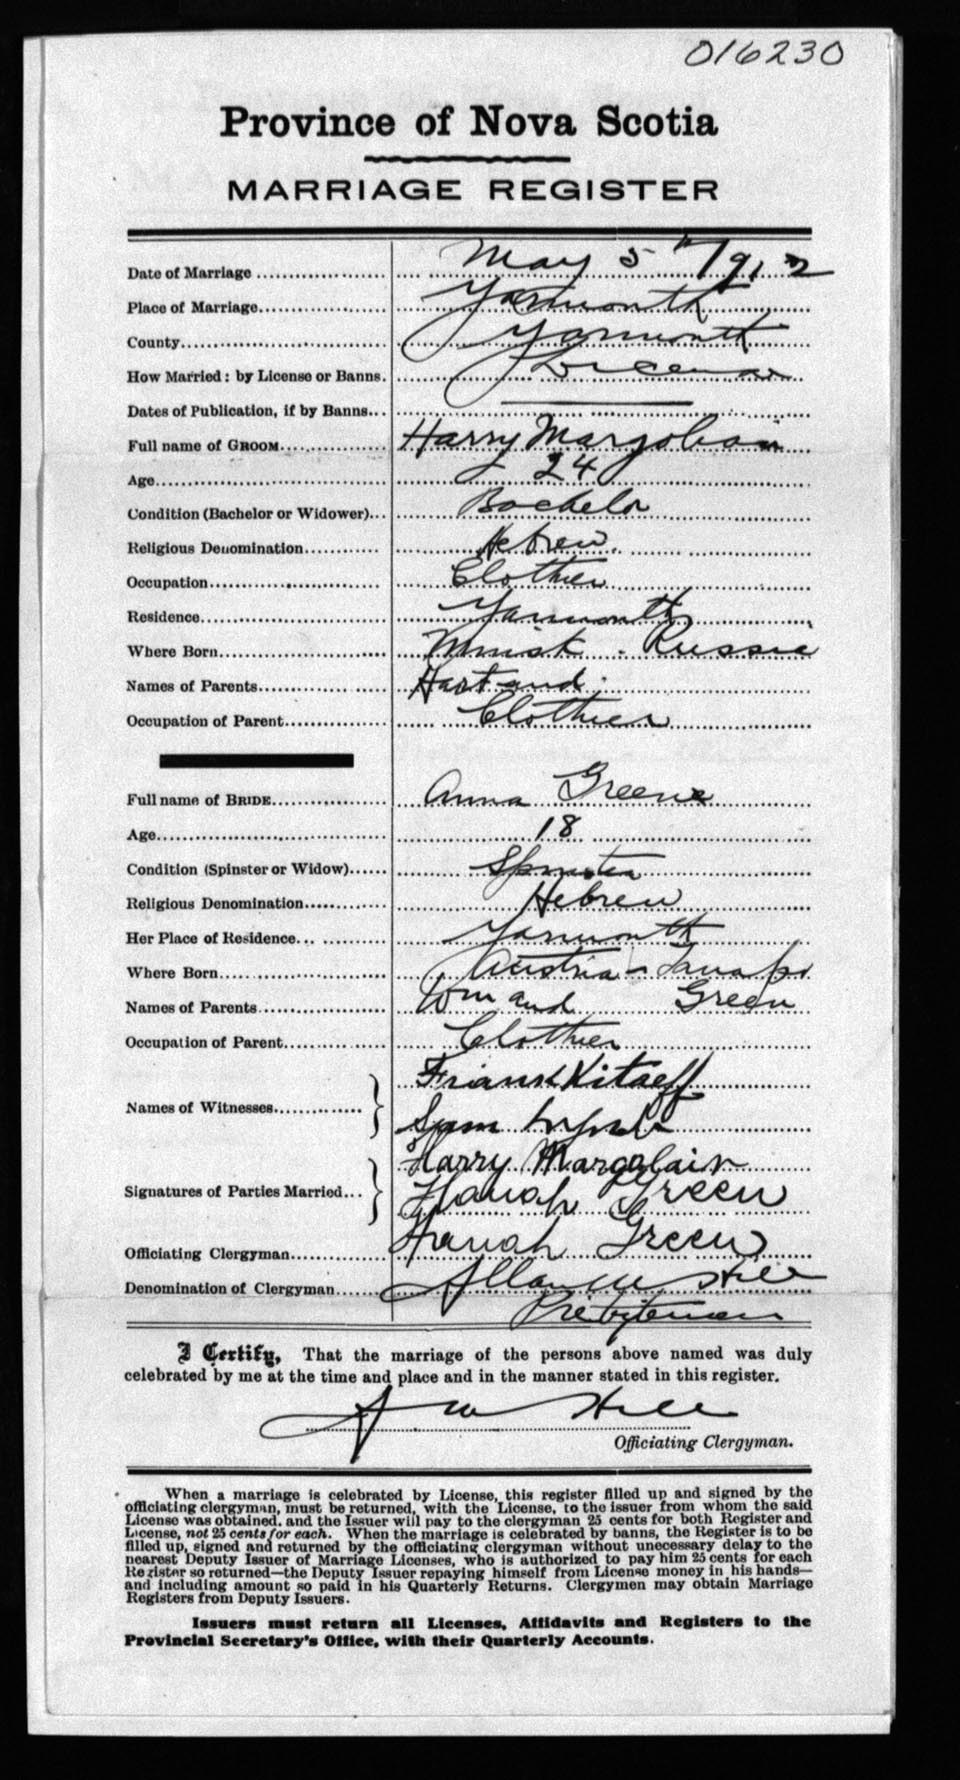 016230
Province of Nova Scotia
MARRIAGE REGISTER
Date of Marriage May 5th 1912
Place of Marriage Yarmouth
County Yarmouth
How Married: by License or Banns. License
Dates of Publication, if by Banns
Full name of GROOM Harry Margolian
Age 24
Condition (Bachelor or Widower) Bachelor
Religious Denomination Hebrew
Occupation Clothier
Residence Yarmouth
Where Born Minsk - Russia
Names of Parents Hart and
Occupation of Parent Clothier
Full name of BRIDE Anna Greene
Age 18
Condition (Spinster or Widow) Spinster
Religious Denomination Hebrew
Her Place of Residence Yarmouth
Where Born Austria -
Names of Parents Wm and Green
Occupation of Parent Clothier
Frank Kitaeff
Names of Witnesses
Sam
Harry Margolain
Signatures of Parties Married
Hanah Green
Hanah Green
Officiating Clergyman
Allan M Hill
Denomination of Clergyman
Presbyterian
I Certify, That the marriage of the persons above named was duly
celebrated by me at the time and place and in the manner stated in this register.
A M Hill
Officiating Clergyman.
When a marriage is celebrated by License, this register filled up and signed by the
officiating clergyman, must be returned, with the License, to the issuer from whom the said
License was obtained, and the Issuer will pay to the clergyman 25 cents for both Register and
License, not 25 cents for each. When the marriage is celebrated by banns, the Register is to be
filled up, signed and returned by the officiating clergyman without unecessary delay to the
nearest Deputy Issuer of Marriage Licenses, who is authorized to pay him 25 cents for each
Register so returned—the Deputy Issuer repaying himself from License money in his hands—
and including amount so paid in his Quarterly Returns. Clergymen may obtain Marriage
Registers from Deputy Issuers.
Issuers must return all Licenses, Affidavits and Registers to the
Provincial Secretary's Office, with their Quarterly Accounts.